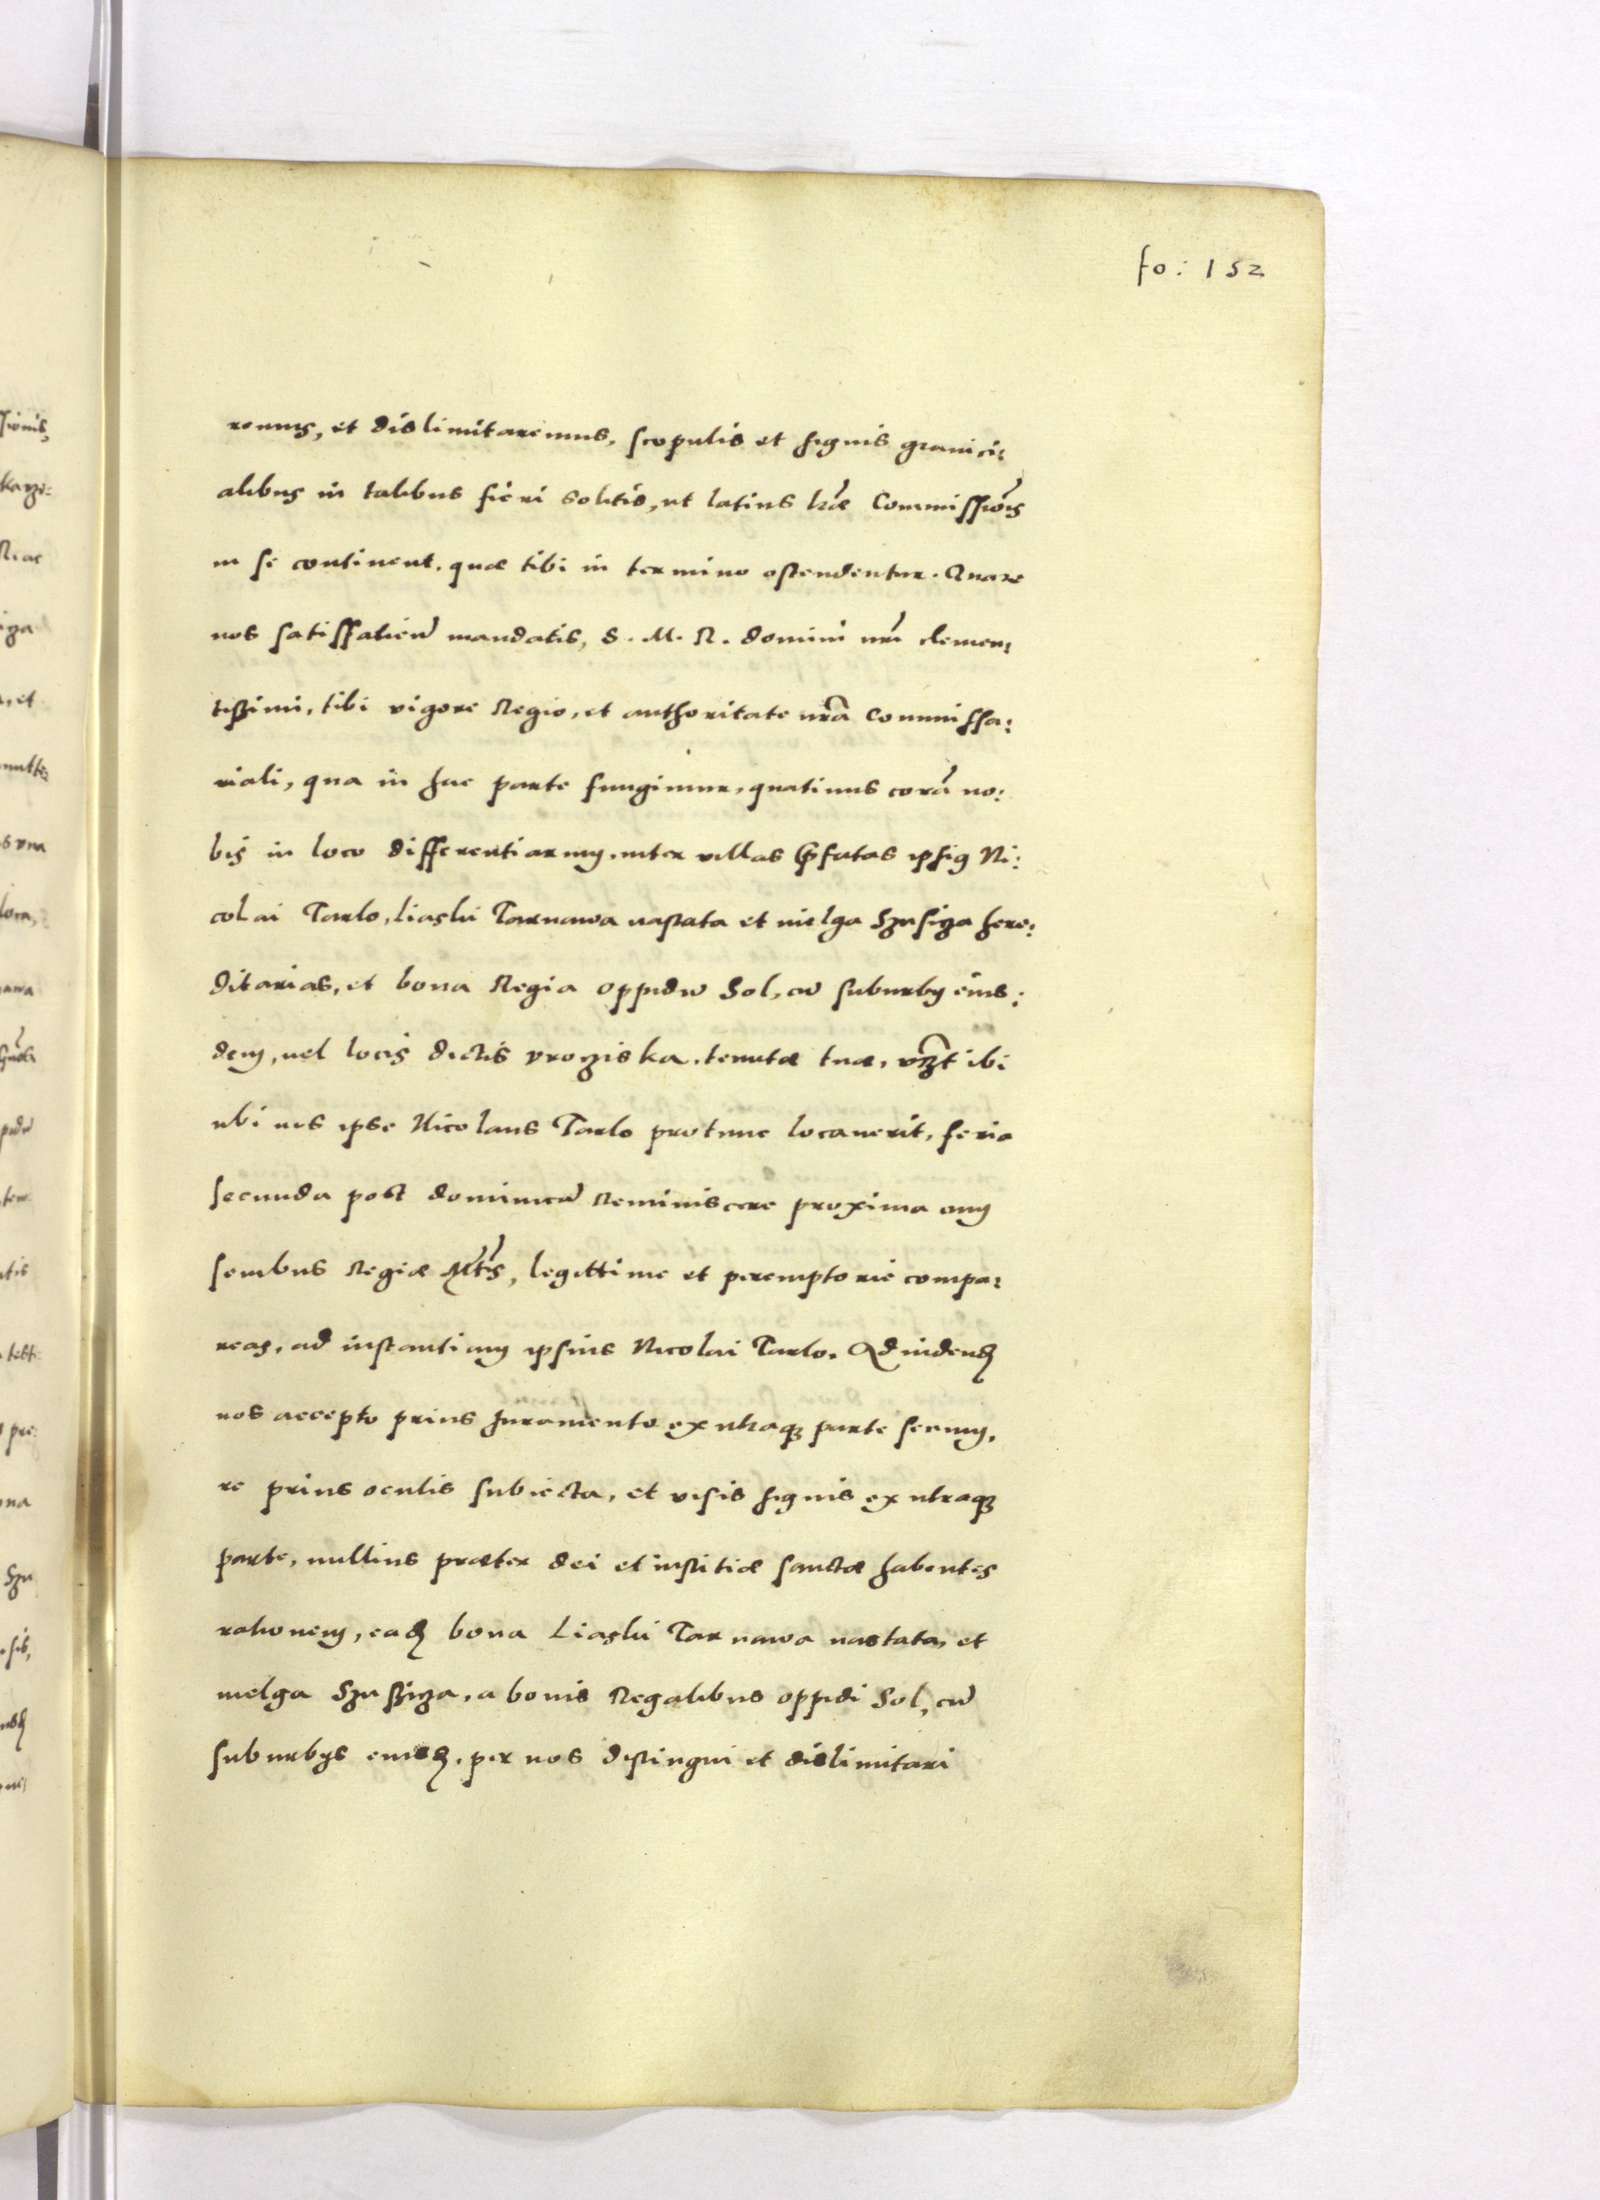 fo: 152
remus, et dislimitaremus, scopulis et signis granici:
alibus in talibus fieri solitis, ut latius lrae Commissiois
in se continent, quae tibi in termino ostendentur. Quare
nos satisfacieñ mandatis, S. M. R. domini nri clemen:
tissimi, tibi vigore Regio, et authoritate nra Commissa:
riali, qua in hac parte fungimur, quatinus corã no:
bis in loco differentiarum, inter villas pfatas ipsius Ni:
colai Tarlo, Liaski Tarnawa vastata et vielga Szusiza here:
ditarias, et bona Regia oppidũ Sol, cũ suburby eius:
dem, vel locis dictis Vroziska, tenutae tuae, vzt ibi
ubi nos ipse Nicolaus Tarlo protunc locaverit, feria
secunda post dominicã Reminiscere proxima cum
senibus Regiae Mtis, legittime et peremptorie compa:
reas, ad instantiam ipsius Nicolai Tarlo. Ad videnđ
nos accepto prius Juramento ex utraqz parte senum,
re prius oculis subiecta, et visis signis ex utraqz
parte, nullius praeter dei et iustitiae sanctae habentes
rationem, eađ bona Liaski Tarnawa vastata, et
vielga Szusziza, a bonis Regalibus oppidi Sol, cũ
suburbys eiusđ, per nos distingui et dislimitari